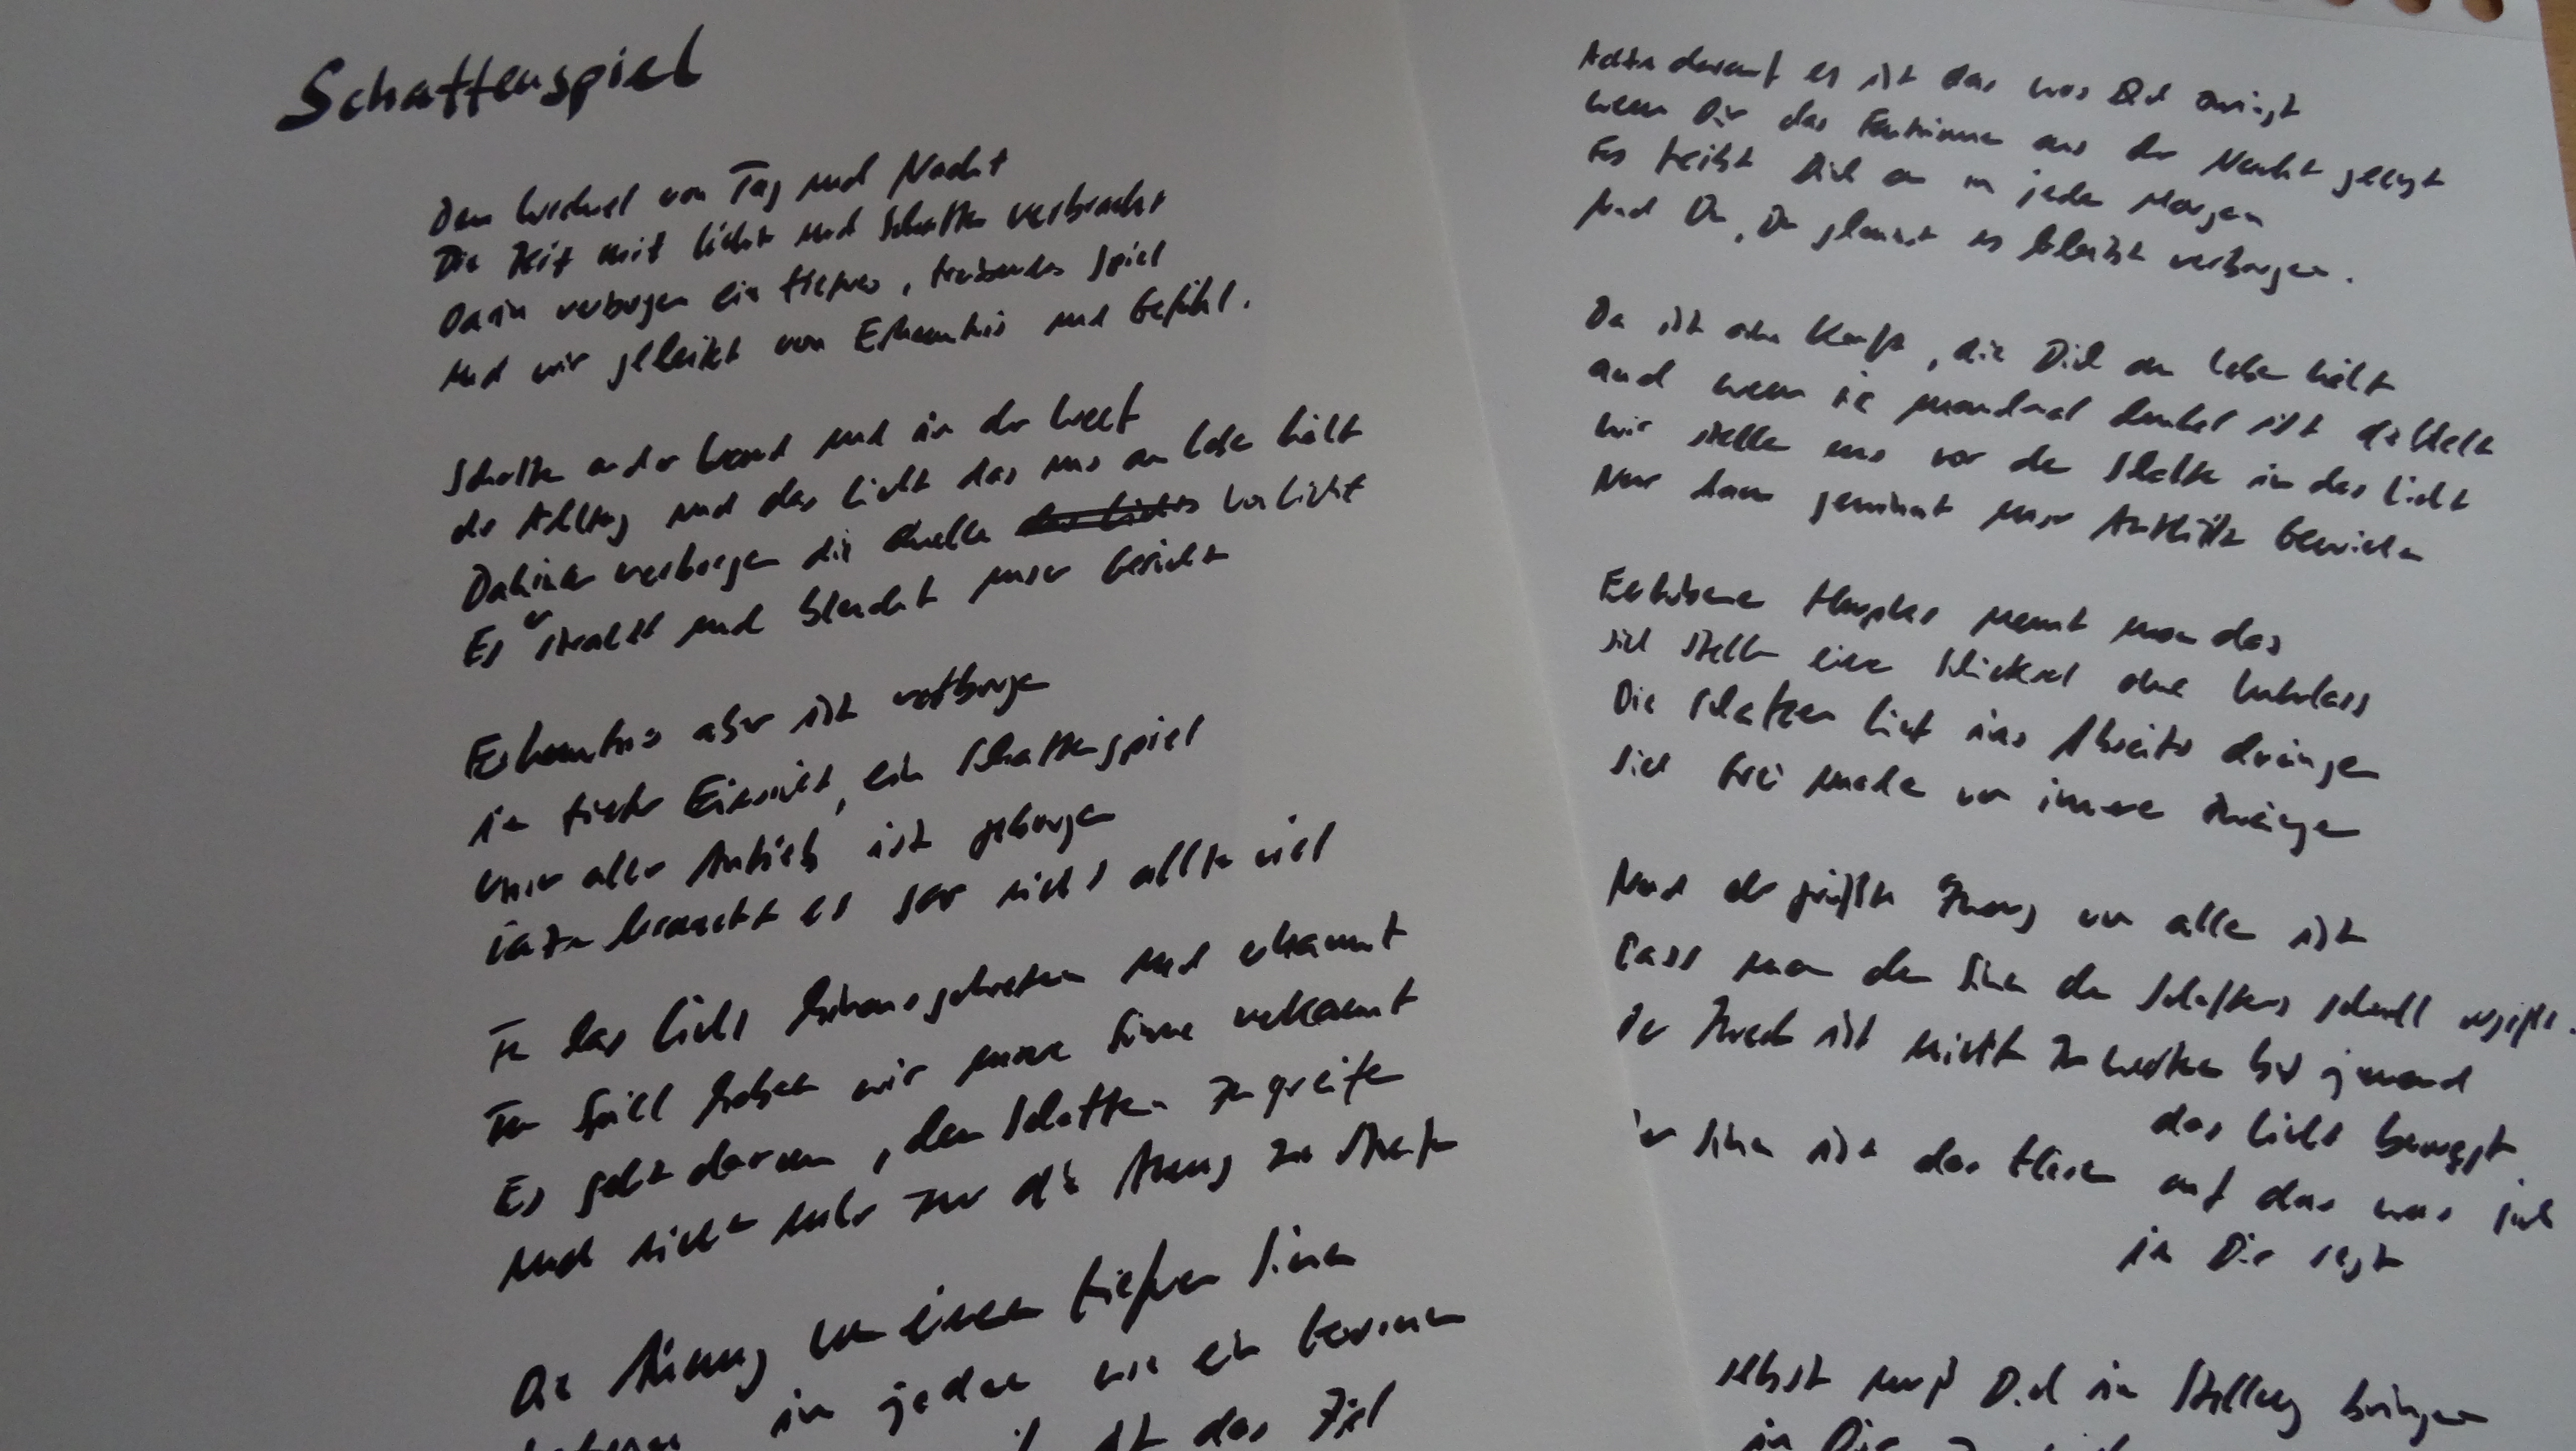 Schattenspiel
Dem Wechsel von Tag und Nacht
Die Zeit mit Licht und Schatten verbracht
Darin verborgen ein tieferes, treibendes Spiel
Und wir geleitet von Erkenntnis und Gefühl.
Schatten an der Wand und in der Welt
der Alltag und das Licht das uns am Leben hält
Dahinter verborgen die Quelle von Licht
Es erstrahlt und blendet unser Gesicht
Erkenntnis aber ist verborgen
in tiefer Einsicht, ein Schattenspiel
Unser aller Antrieb ist geborgen
Dazu braucht es gar nicht allzu viel
In das Licht hinausgetreten und erkannt
Im Spiel haben wir unsere Sinne verkannt
Es geht darum, den Schatten zu greifen
und nicht mehr nur die Ahnung zu streifen
Die Ahnung von einem tieferen Sinn
in jedem wie ein Gewinn
ist das Ziel
Achte darauf es ist das was Dich zwingt
wenn Dir das Entrinnen aus der Nacht gelingt
Es treibt Dich an an jedem Morgen
und Du, Du glaubst es bleibt verborgen.
Da ist eine Kraft, die Dich am Leben hält
und wenn sie manchmal dunkel ist die Welt
Wir stellen uns vor den Schatten in das Licht
Nur dann gewinnt unser Antlitz Gewicht
Erhobenen Hauptes nennt man das
sich stellen einem Schicksal ohne
Die Schatten ins Abseits drängen
sich frei machen von inneren Zwängen
Und der größte Zwang von allen ist
Dass man den Sinn des Schattens schnell vergisst.
Der Zweck ist nicht zu warten bis jemand
das Licht bewegt
Der Sinn ist das Hören auf das was sich
in Dir regt
selbst muß Dich in Stellung bringen
in Dir